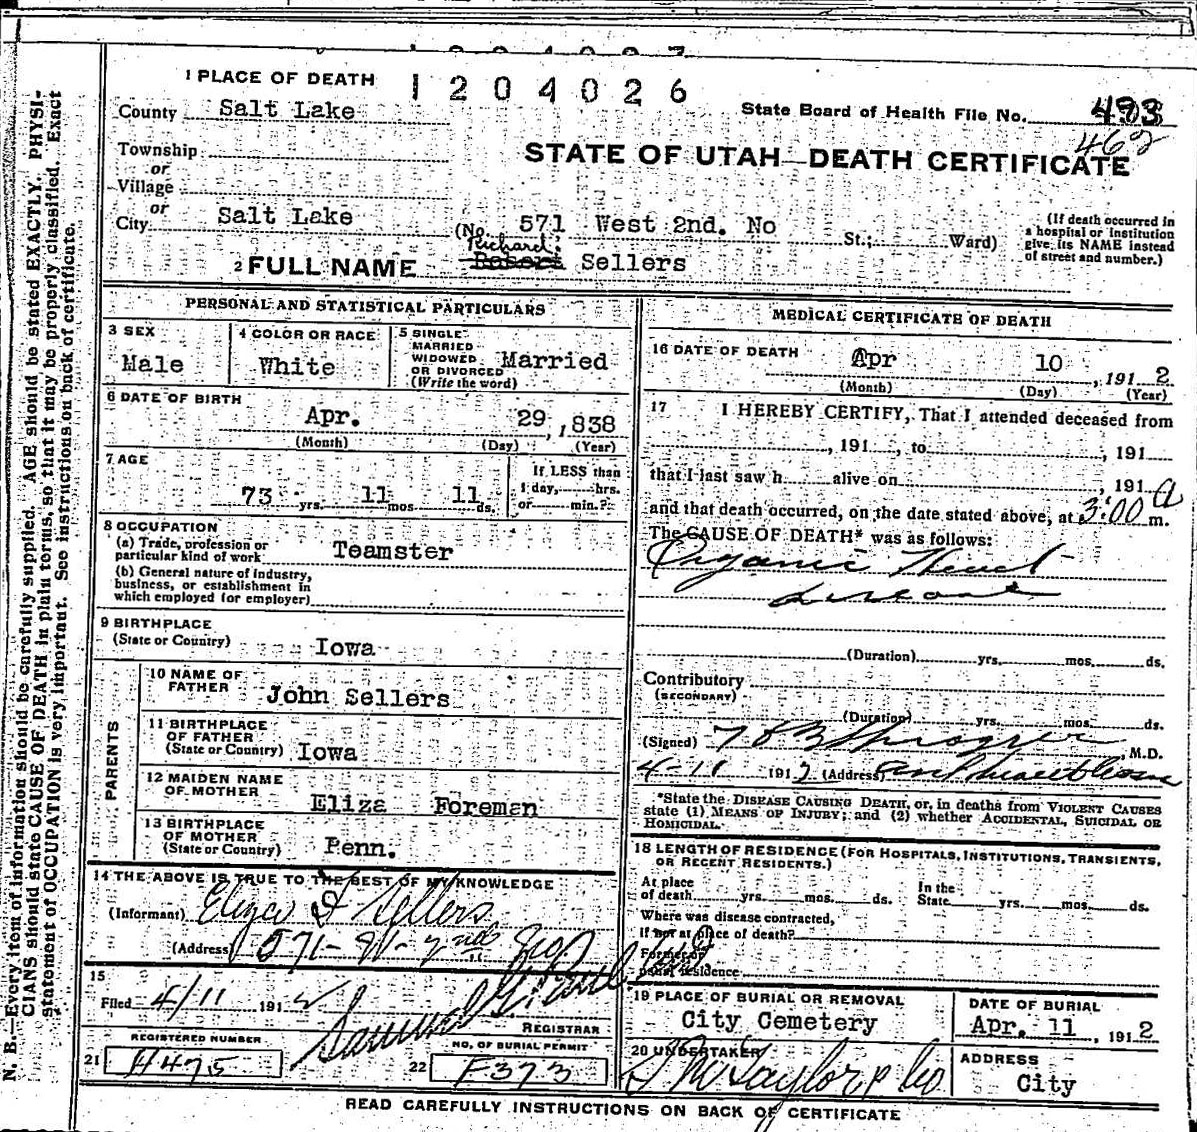 1204026
1 PLACE OF DEATH
County Salt Lake
State Board of Health File No. 493
462
Township
or
Village
or
City Salt Lake
STATE OF UTAH—DEATH CERTIFICATE
(No. 571 West 2nd. No St.; Ward)
(If death occurred in
a hospital or institution
give its NAME instead
of street and number.)
Richard
2 FULL NAME Robert Sellers
PERSONAL AND STATISTICAL PARTICULARS
3 SEX
Male
4 COLOR OR RACE
White
5 SINGLE
MARRIED
WIDOWED
OR DIVORCED
(Write the word)
Married
6 DATE OF BIRTH
Apr. 29, 1838
(Month) (Day) (Year)
7 AGE
73 yrs. 11 mos 11 ds.
If LESS than
1 day, hrs.
or min.?
8 OCCUPATION
(a) Trade, profession or
particular kind of work Teamster
(b) General nature of industry,
business, or establishment in
which employed (or employer)
9 BIRTHPLACE
(State or Country) Iowa
PARENTS
10 NAME OF
FATHER John Sellers
11 BIRTHPLACE
OF FATHER
(State or Country) Iowa
12 MAIDEN NAME
OF MOTHER Eliza Foreman
13 BIRTHPLACE
OF MOTHER
(State or Country) Penn.
14 THE ABOVE IS TRUE TO THE BEST OF MY KNOWLEDGE
(Informant) Eliza Sellers
(Address) 571-W-2nd No.
15
Filed 4/11 1912
REGISTRAR
REGISTERED NUMBER
21 H475
NO. OF BURIAL PERMIT
22 F373
MEDICAL CERTIFICATE OF DEATH
16 DATE OF DEATH Apr 10, 1912
(Month) (Day) (Year)
17 I HEREBY CERTIFY, That I attended deceased from
, 191 , to , 191
that I last saw h alive on , 191
and that death occurred, on the date stated above, at 3:00 a m.
The CAUSE OF DEATH* was as follows:
Organic Heart
disease
(Duration) yrs. mos. ds.
Contributory
(SECONDARY)
(Duration) yrs. mos. ds.
(Signed) , M.D.
4-11 1912 (Address)
*State the DISEASE CAUSING DEATH, or, in deaths from VIOLENT CAUSES
state (1) MEANS OF INJURY; and (2) whether ACCIDENTAL, SUICIDAL OR
HOMICIDAL.
18 LENGTH OF RESIDENCE (FOR HOSPITALS, INSTITUTIONS, TRANSIENTS,
OR RECENT RESIDENTS.)
At place
of death yrs. mos. ds.
In the
State yrs. mos. ds.
Where was disease contracted,
If not at place of death?
Former or
usual residence
19 PLACE OF BURIAL OR REMOVAL
City Cemetery
DATE OF BURIAL
Apr. 11, 1912
20 UNDERTAKER
Taylor Co
ADDRESS
City
READ CAREFULLY INSTRUCTIONS ON BACK OF CERTIFICATE
N. B.—Every item of information should be carefully supplied. AGE should be stated EXACTLY. PHYSI-
CIANS should state CAUSE OF DEATH in plain terms, so that it may be properly classified. Exact
statement of OCCUPATION is very important. See instructions on back of certificate.